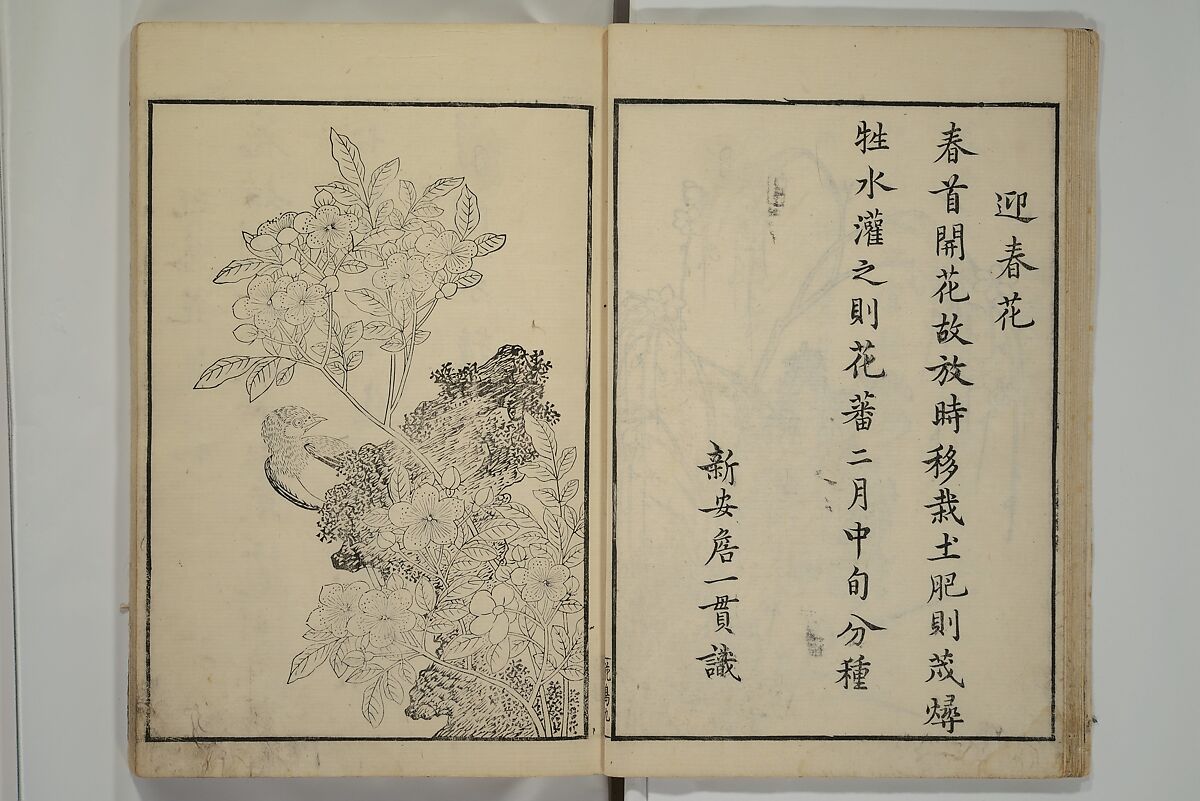 迎春花
春首開花故放時移栽土肥則茂燖
牲水灌之則花蕃二月中旬分種
新安詹一貫識